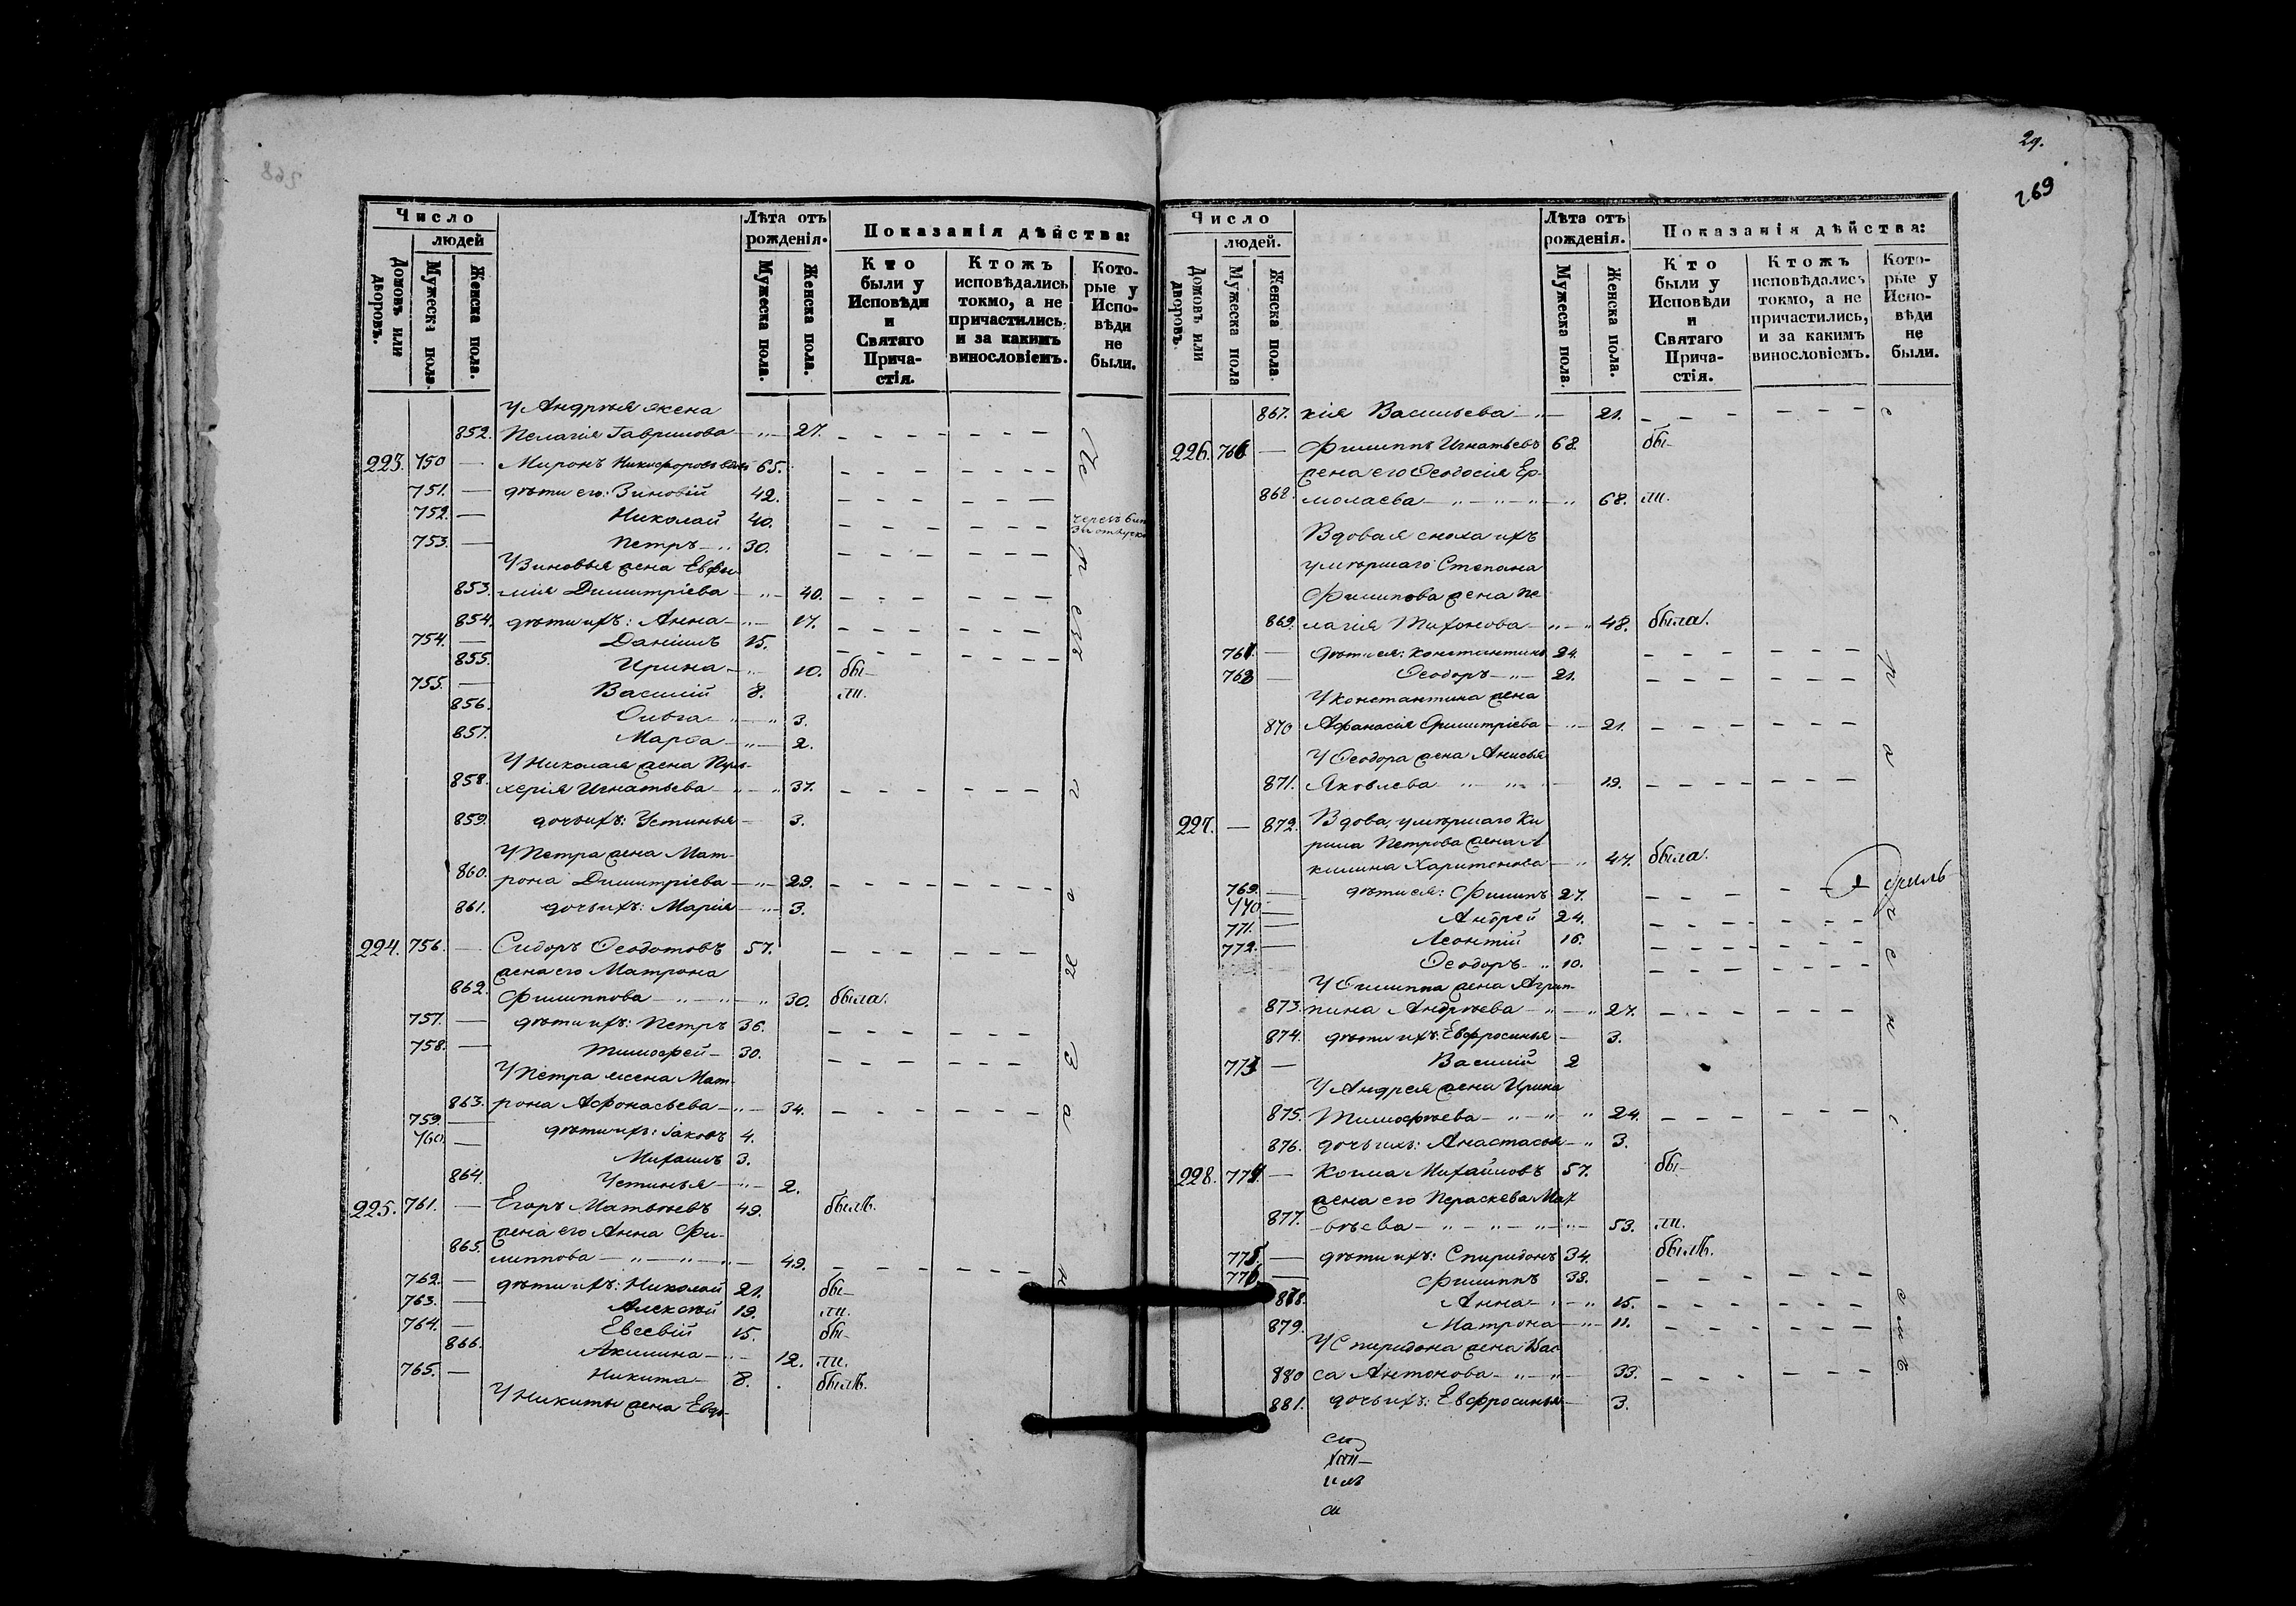 Число
людей
Лѣта отъ
рожденія.
Показанія дѣйства:
Домовъ или
дворовъ.
Мужеска пола.
Женска пола.
Мужеска пола.
Женска пола.
Кто
были у
Исповѣди
и
Святаго
Прича-
стія.
Ктожъ
исповѣдались
токмо, а не
причастились,
и за какимъ
винословіемъ.
Кото-
рые у
Испо-
вѣди
не
были.
У Андрѣя жена
852. Пелагія Гаврилова — 27.
223. 750 — Миронъ Никифоровъ 65.
751. — дѣти его: Зиновій 42.
752. — Николай 40.
753. — Петръ 30.
У Зиновья жена Евфи-
853. мія Димитріева — 40.
854. дѣти ихъ: Анна — 17.
754. — Даніилъ 15.
855. Ирина — 10. бы-
755. — Василій 8. ли.
856. Ольга — 3.
857. Марѳа — 2.
У Николая жена Пуль-
858. херія Игнатьева — 37.
859. дочь ихъ: Устинья — 3.
У Петра жена Мат-
860. рона Димитріева — 29.
861. дочь ихъ: Марія — 3.
224. 756. — Сидоръ Ѳеодотовъ 57.
жена его Матрона
862. Филиппова — 30. была.
757. — дѣти ихъ: Петръ 36.
758. — Тимофей — 30.
У Петра жена Мат-
863. рона Афонасьева — 34.
759. — дѣти ихъ: Іаковъ 4.
760. — Михаилъ 3.
864. Устинья — 2.
225. 761. — Егоръ Матвѣевъ 49. былъ.
жена его Анна Фи-
865. липпова — 49.
762. — дѣти ихъ: Николай 21. бы-
763. — Алексѣй 19. ли.
764. — Евсевій 15. бы-
866. Акилина — 12. ли.
765. — Никита 8. былъ.
У Никиты жена Евдо-
29.
269
Число
людей.
Лѣта отъ
рожденія.
Показанія дѣйства:
Домовъ или
дворовъ.
Мужеска пола
Женска пола.
Мужеска пола.
Женска пола.
Кто
были у
Исповѣди
и
Святаго
Прича-
стія.
Ктожъ
исповѣдались
токмо, а не
причастились,
и за какимъ
винословіемъ.
Кото-
рые у
Испо-
вѣди
не
были.
867. кія Васильева — 21.
226. 766 — Филиппъ Игнатьевъ 68. бы-
жена его Ѳеодосія Ер-
868. молаева — 68. ли.
Вдовая сноха ихъ
умершаго Степана
Филипова жена Пе
869. лагія Тихонова — 48. была.
767. — дѣти ея: Константинъ 24.
768 — Ѳеодоръ — 21.
У Константина жена
870 Афанасія Димитріева — 21.
У Ѳеодора жена Анисья
871. Яковлева — 19.
227. — 872. Вдова, умершаго Ки
рила Петрова жена А-
килина Харитонова — 47. была.
769. — дѣти ея: Филипъ 27.
770 — Андрей 24.
771. — Леонтій 16.
772. — Ѳеодоръ 10.
У Филиппа жена Агрип-
873. пина Андрѣева — 27.
874. дѣти ихъ: Евфросинья — 3.
773 — Василій 2
У Андрея жена Ирина
875. Тимофѣева — 24.
876. дочь ихъ: Анастасья — 3.
228. 774. — Козма Михайловъ 57. бы-
жена его Пераскева Мат
877. -вѣева — 53. ли.
775. — дѣти ихъ: Спиридонъ 34. былъ.
776. — Филиппъ 33.
878. Анна — 15.
879. Матрона — 11.
У Спиридона жена Вас
880 са Антонова — 33.
881. дочь ихъ: Евфросинья — 3.